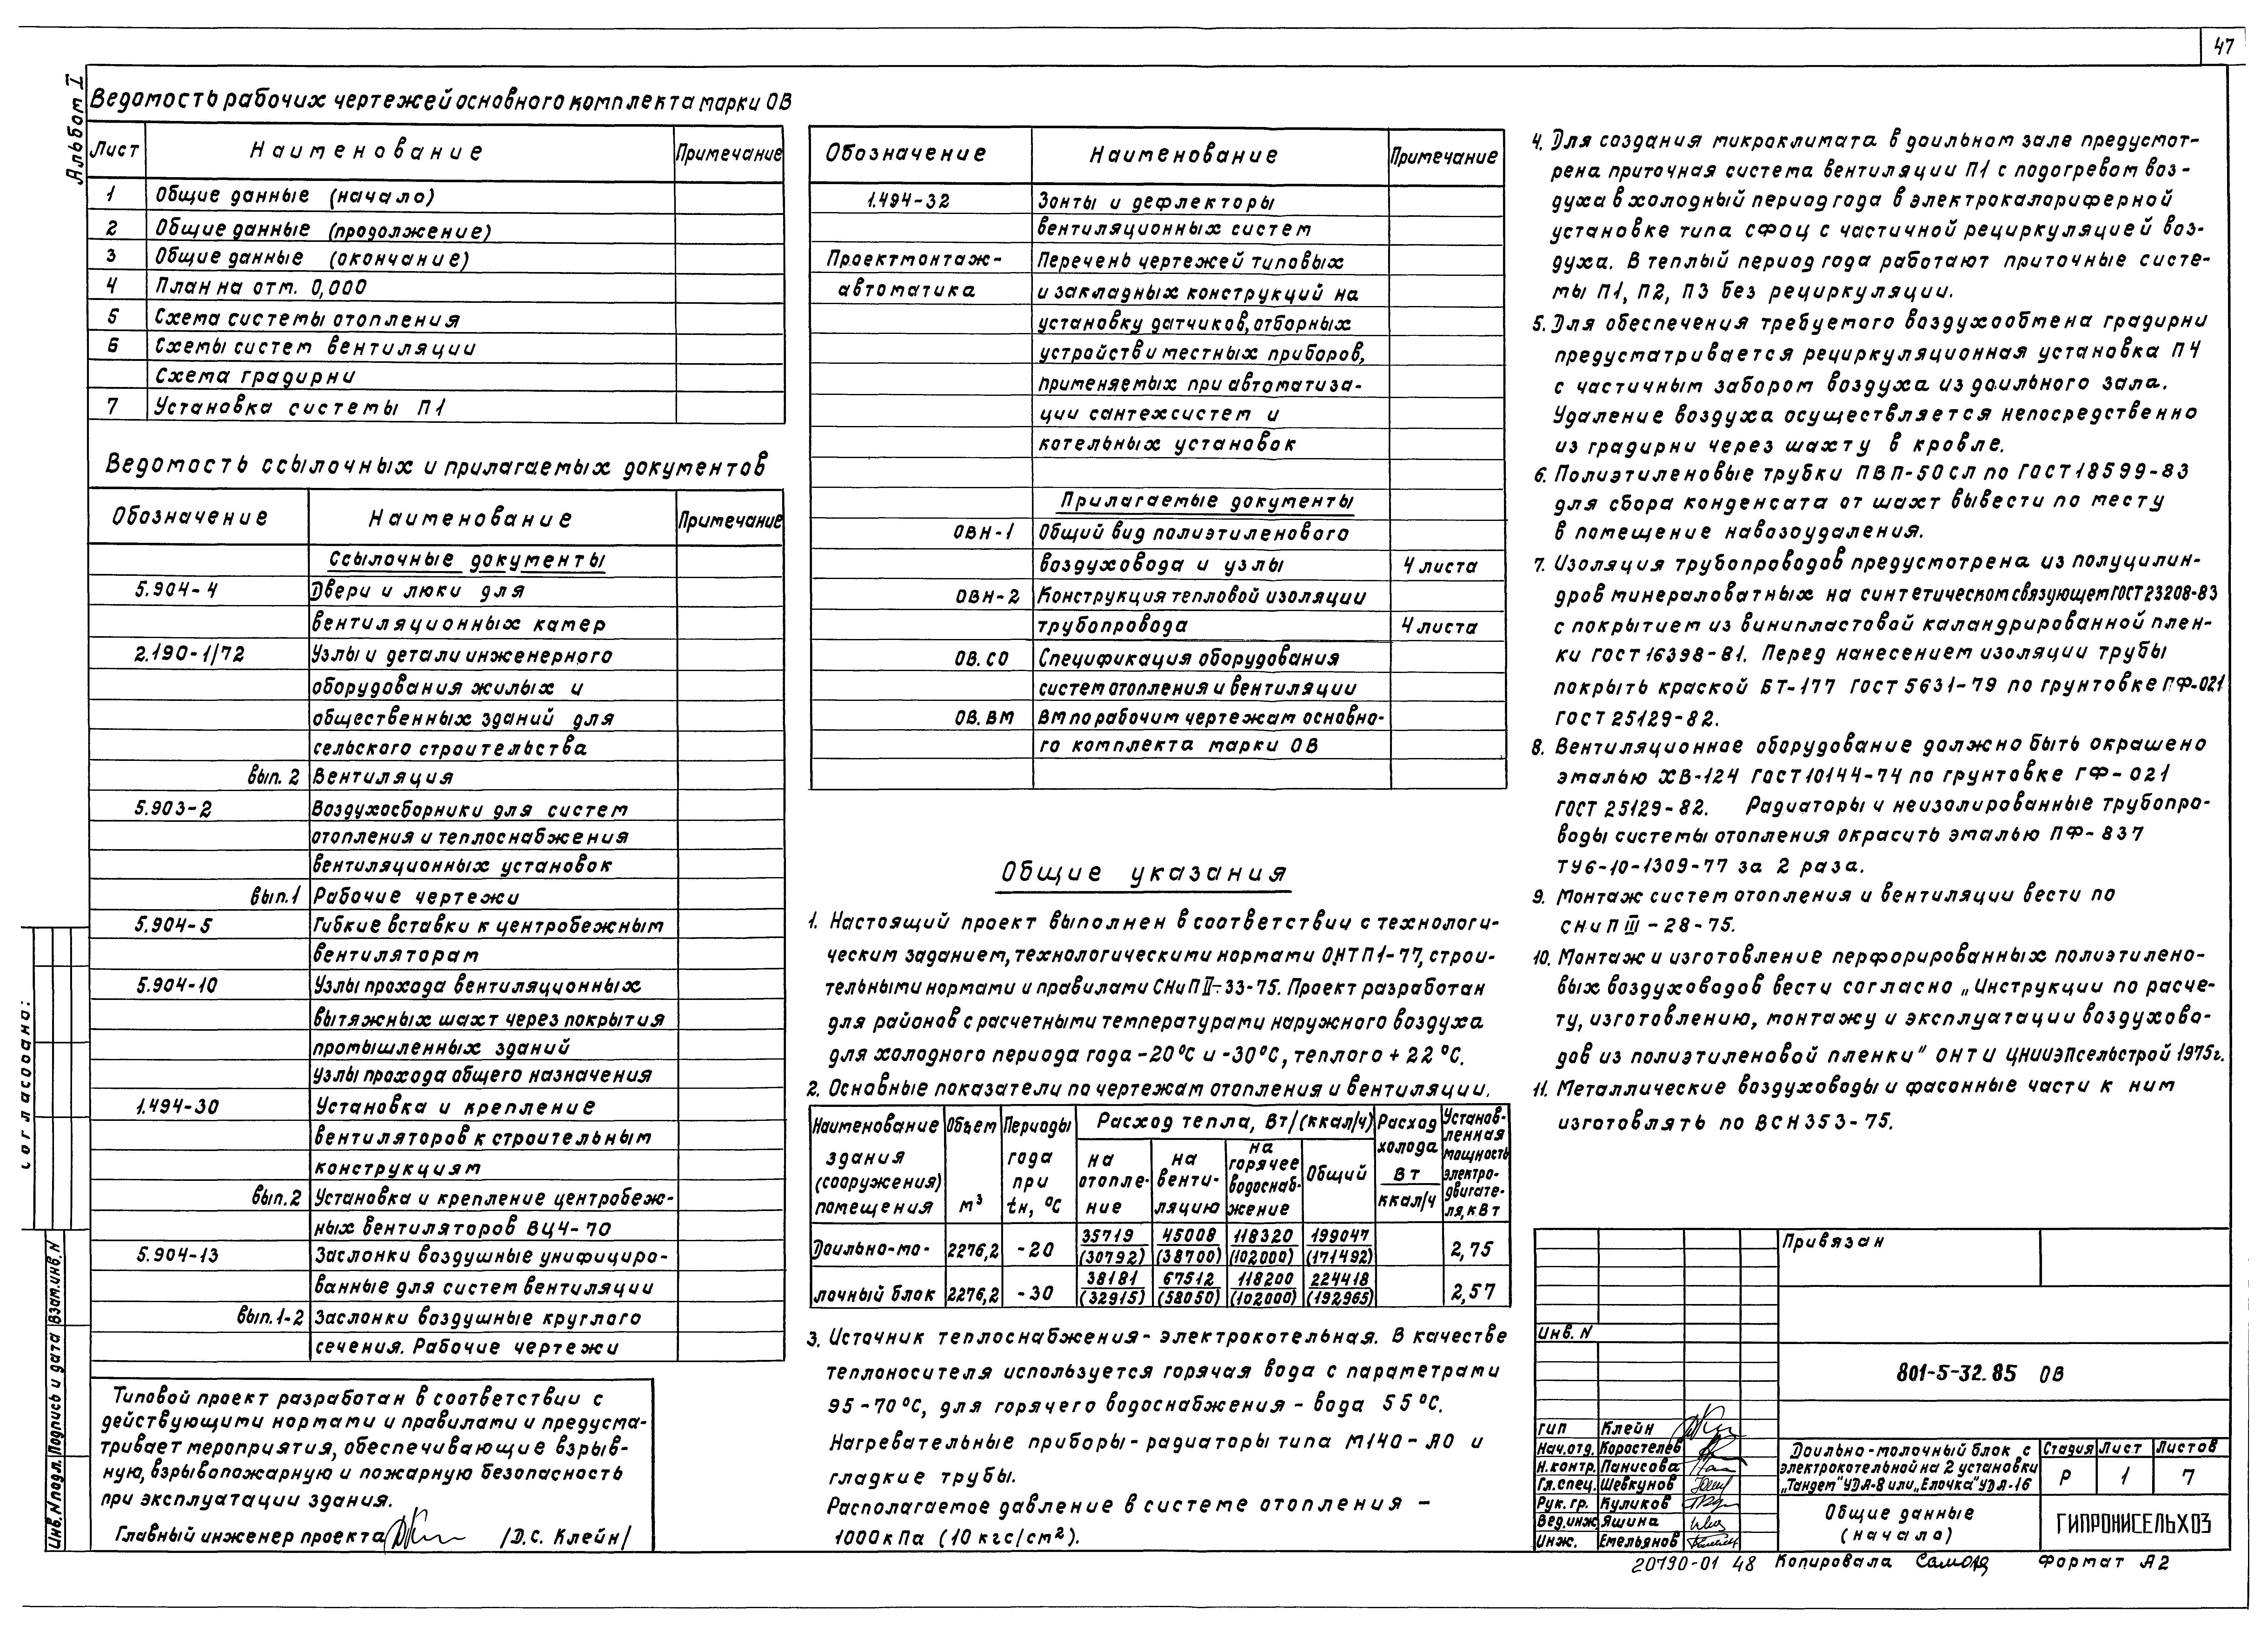 47
Альбом I
Ведомость рабочих чертежей основного комплекта марки ОВ
Лист Наименование Примечание
1 Общие данные (начало)
2 Общие данные (продолжение)
3 Общие данные (окончание)
4 План на отм. 0,000
5 Схема системы отопления
6 Схемы систем вентиляции
Схема градирни
7 Установка системы П1
Ведомость ссылочных и прилагаемых документов
Обозначение Наименование Примечание
Ссылочные документы
5.904-4 Двери и люки для
вентиляционных камер
2.190-1/72 Узлы и детали инженерного
оборудования жилых и
общественных зданий для
сельского строительства
вып. 2 Вентиляция
5.903-2 Воздухосборники для систем
отопления и теплоснабжения
вентиляционных установок
вып.1 Рабочие чертежи
5.904-5 Гибкие вставки к центробежным
вентиляторам
5.904-10 Узлы прохода вентиляционных
вытяжных шахт через покрытия
промышленных зданий
Узлы прохода общего назначения
1.494-30 Установка и крепление
вентиляторов к строительным
конструкциям
вып.2 Установка и крепление центробеж-
ных вентиляторов ВЦ4-70
5.904-13 Заслонки воздушные унифициро-
ванные для систем вентиляции
вып.1-2 Заслонки воздушные круглого
сечения. Рабочие чертежи
Типовой проект разработан в соответствии с
действующими нормами и правилами и предусма-
тривает мероприятия, обеспечивающие взрыв-
ную, взрывопожарную и пожарную безопасность
при эксплуатации здания.
Главный инженер проекта /Д.С. Клейн/
Согласовано:
Инв.N подл. Подпись и дата Взам.инв.N
Обозначение Наименование Примечание
1.494-32 Зонты и дефлекторы
вентиляционных систем
Проектмонтаж- Перечень чертежей типовых
автоматика и закладных конструкций на
установку датчиков, отборных
устройств и местных приборов,
применяемых при автоматиза-
ции сантехсистем и
котельных установок
Прилагаемые документы
ОВН-1 Общий вид полиэтиленового
воздуховода и узлы 4 листа
ОВН-2 Конструкция тепловой изоляции
трубопровода 4 листа
ОВ.СО Спецификация оборудования
систем отопления и вентиляции
ОВ.ВМ ВМ по рабочим чертежам основно-
го комплекта марки ОВ
Общие указания
1. Настоящий проект выполнен в соответствии с технологи-
ческим заданием, технологическими нормами ОНТП1-77, строи-
тельными нормами и правилами СНиП II-33-75. Проект разработан
для районов с расчетными температурами наружного воздуха
для холодного периода года -20°С и -30°С, теплого +22°С.
2. Основные показатели по чертежам отопления и вентиляции.
Наименование здания (сооружения) помещения Объем м³ Периоды года при tн, °С Расход тепла, Вт/(ккал/ч) Расход холода Вт ккал/ч Установ-ленная мощность электро-двигате-ля, кВт
на отопле-ние на венти-ляцию на горячее водоснаб-жение Общий
Доильно-мо- 2276,2 -20 35719 (30792) 45008 (38700) 118320 (102000) 199047 (171492) 2,75
лочный блок 2276,2 -30 38181 (32915) 67512 (58050) 118200 (102000) 224418 (192965) 2,57
3. Источник теплоснабжения - электрокотельная. В качестве
теплоносителя используется горячая вода с параметрами
95-70°С, для горячего водоснабжения - вода 55°С.
Нагревательные приборы - радиаторы типа М140-АО и
гладкие трубы.
Располагаемое давление в системе отопления -
1000кПа (10кгс/см²).
4. Для создания микроклимата в доильном зале предусмот-
рена приточная система вентиляции П1 с подогревом воз-
духа в холодный период года в электрокалориферной
установке типа СФОЦ с частичной рециркуляцией воз-
духа. В теплый период года работают приточные систе-
мы П1, П2, П3 без рециркуляции.
5. Для обеспечения требуемого воздухообмена градирни
предусматривается рециркуляционная установка П4
с частичным забором воздуха из доильного зала.
Удаление воздуха осуществляется непосредственно
из градирни через шахту в кровле.
6. Полиэтиленовые трубки ПВП-50СЛ по ГОСТ 18599-83
для сбора конденсата от шахт вывести по месту
в помещение навозоудаления.
7. Изоляция трубопроводов предусмотрена из полуцилин-
дров минераловатных на синтетическом связующем ГОСТ 23208-83
с покрытием из винипластовой каландрированной плен-
ки ГОСТ 16398-81. Перед нанесением изоляции трубы
покрыть краской БТ-177 ГОСТ 5631-79 по грунтовке ГФ-021
ГОСТ 25129-82.
8. Вентиляционное оборудование должно быть окрашено
эмалью ХВ-124 ГОСТ 10144-74 по грунтовке ГФ-021
ГОСТ 25129-82. Радиаторы и неизолированные трубопро-
воды системы отопления окрасить эмалью ПФ-837
ТУ6-10-1309-77 за 2 раза.
9. Монтаж систем отопления и вентиляции вести по
СНиП III-28-75.
10. Монтаж и изготовление перфорированных полиэтилено-
вых воздуховодов вести согласно „Инструкции по расче-
ту, изготовлению, монтажу и эксплуатации воздухово-
дов из полиэтиленовой пленки" ОНТИ ЦНИИЭПсельстрой 1975г.
11. Металлические воздуховоды и фасонные части к ним
изготовлять по ВСН 353-75.
Привязан
Инв. N
801-5-32.85 ОВ
ГИП Клейн
Нач.отд. Коростелев
Н.контр. Панисова
Гл.спец. Шевкунов
Рук. гр. Куликов
Вед.инж. Яшина
Инж. Емельянов
Доильно-молочный блок с
электрокотельной на 2 установки
„Тандем" УДА-8 или „Елочка" УДА-16
Стадия Лист Листов
Р 1 7
Общие данные
(начало)
ГИПРОНИСЕЛЬХОЗ
20790-01 48 Копировала Формат А2